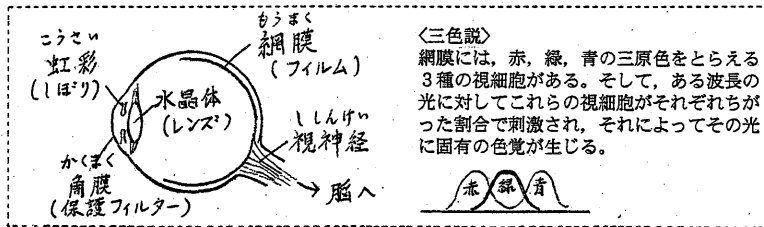 こうさい
虹彩
(しぼり)
もうまく
網膜
(フィルム)
水晶体
(レンズ)
ししんけい
視神経
かくまく
角膜
(保護フィルター)
→脳へ
〈三色説〉
網膜には，赤，緑，青の三原色をとらえる
3種の視細胞がある。そして，ある波長の
光に対してこれらの視細胞がそれぞれちが
った割合で刺激され，それによってその光
に固有の色覚が生じる。
赤 緑 青